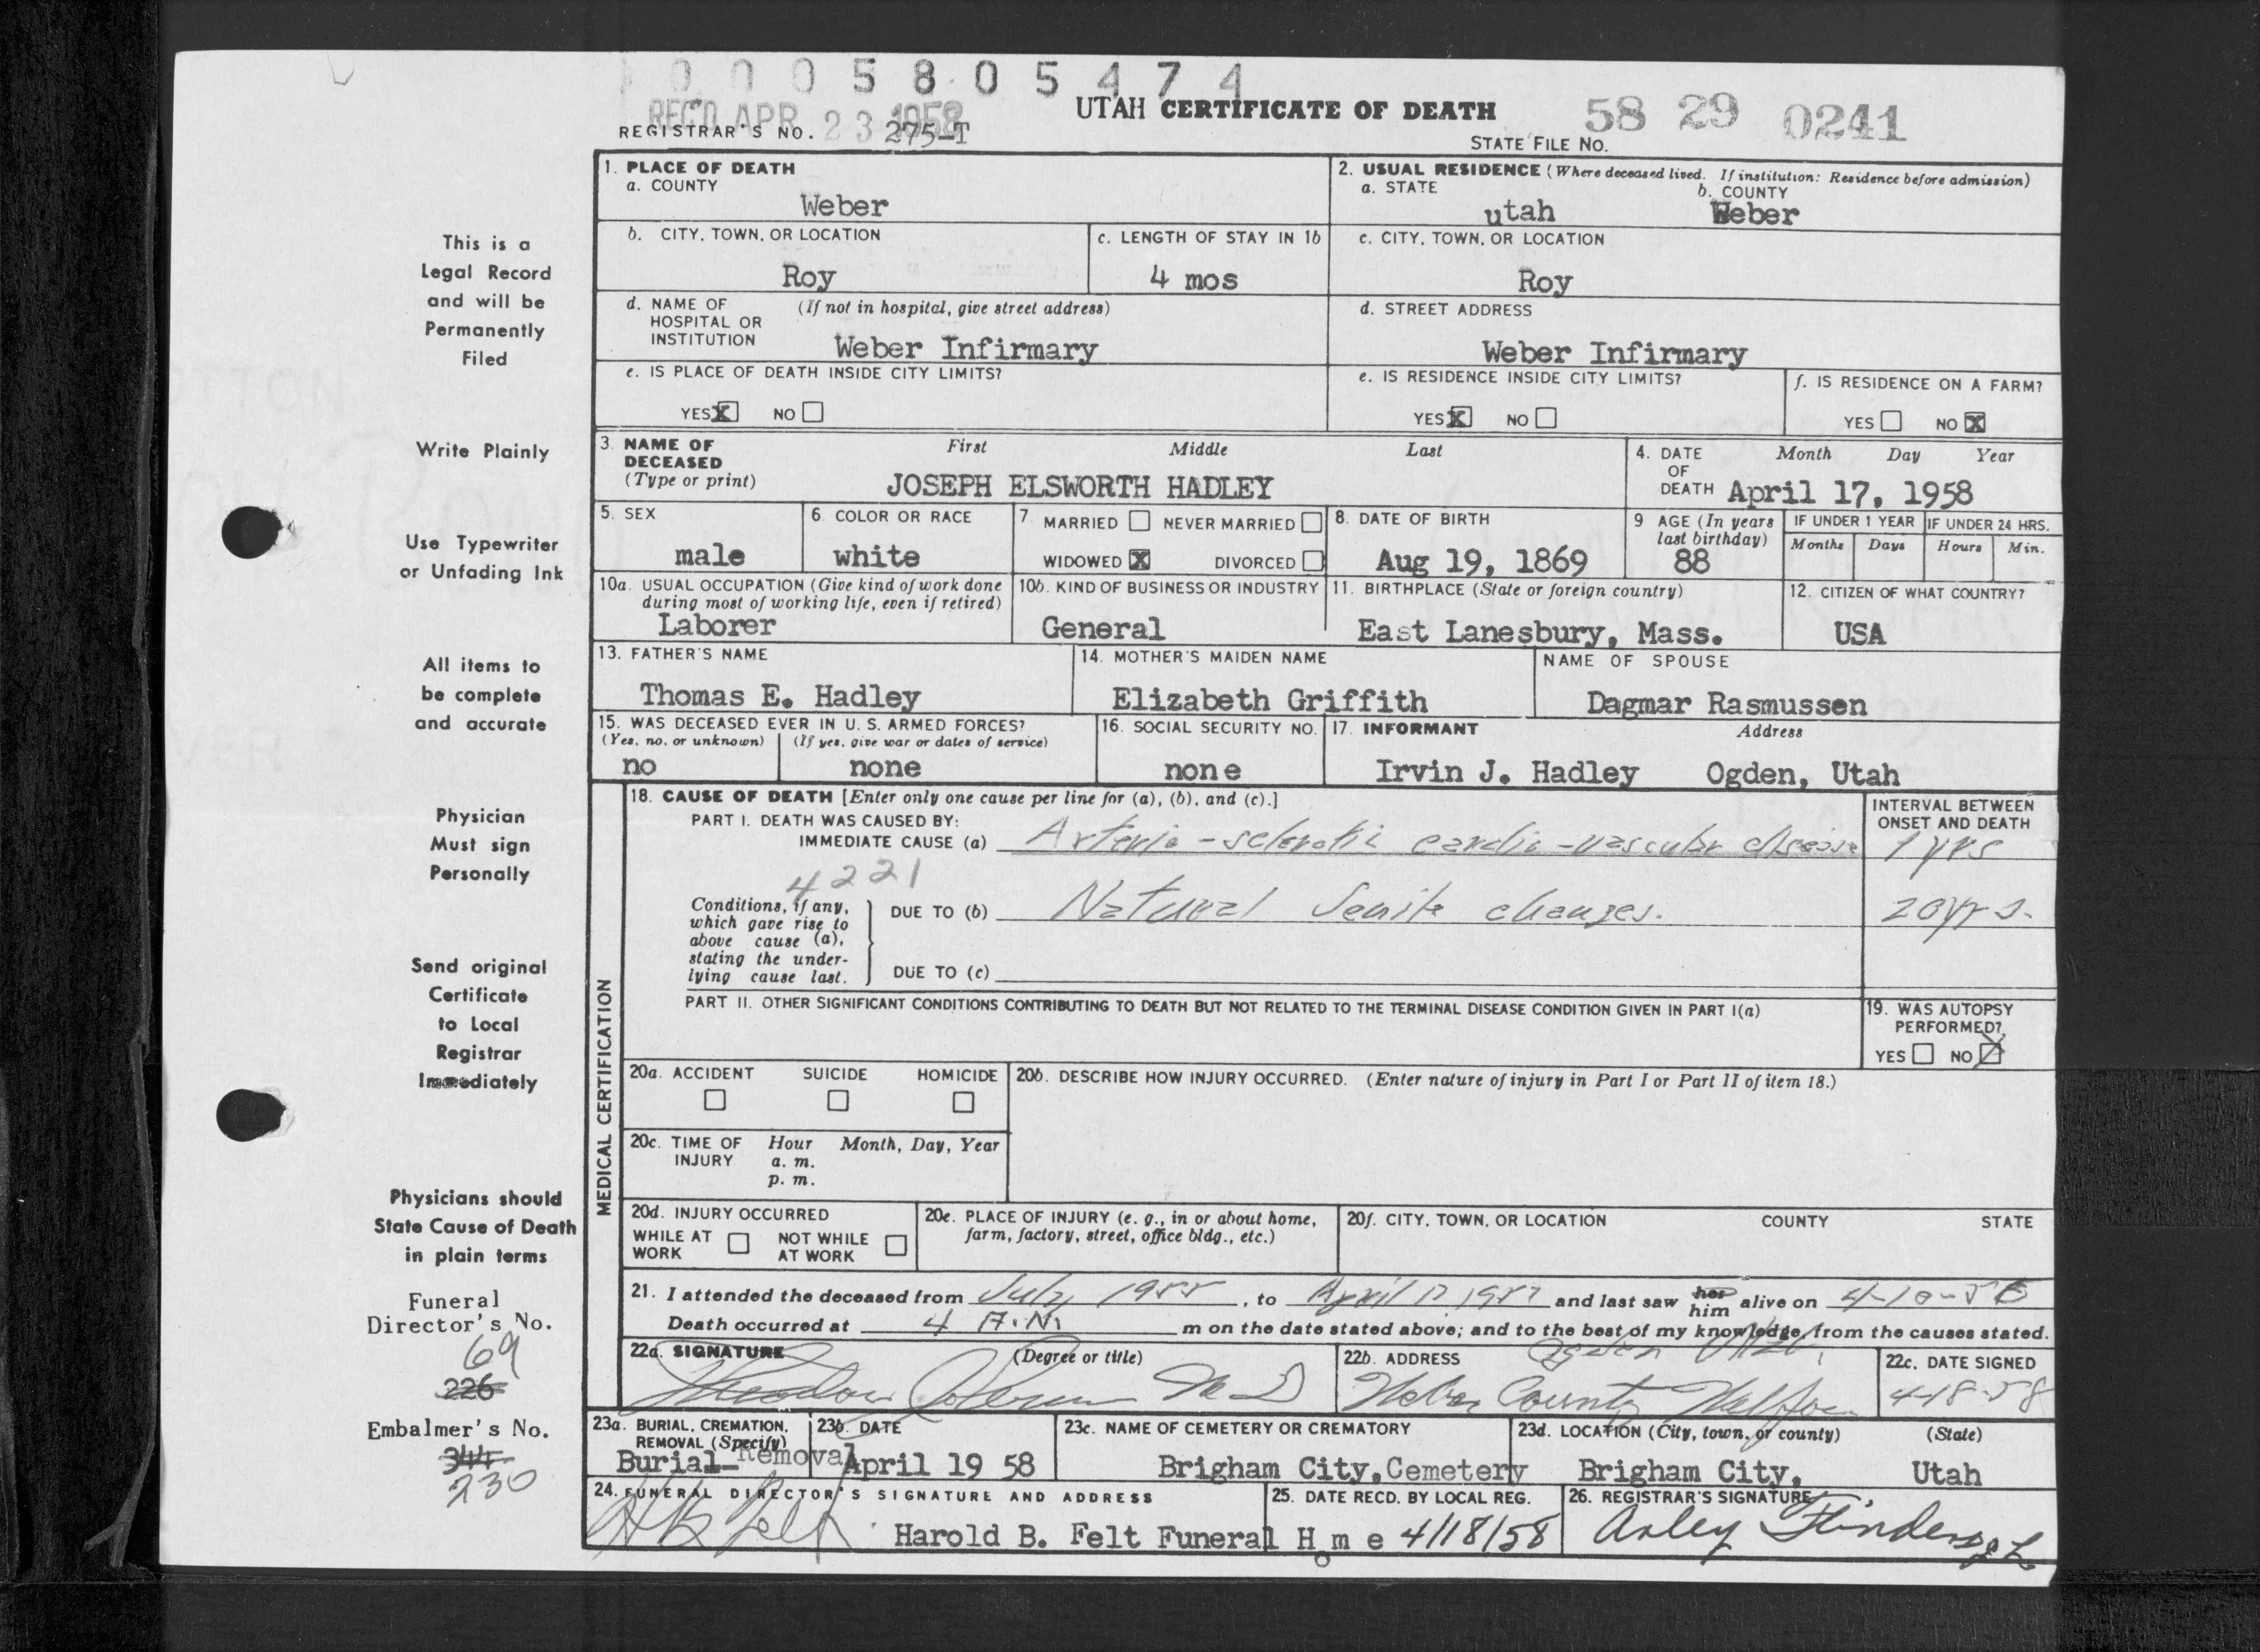 0 0 0 5 8 0 5 4 7 4
REC'D APR 23 1958
UTAH CERTIFICATE OF DEATH
58 29 0241
REGISTRAR'S NO. 275-T
STATE FILE NO.
1. PLACE OF DEATH
a. COUNTY
Weber
2. USUAL RESIDENCE (Where deceased lived. If institution: Residence before admission)
a. STATE b. COUNTY
utah Weber
b. CITY, TOWN, OR LOCATION
Roy
c. LENGTH OF STAY IN 1b
4 mos
c. CITY, TOWN, OR LOCATION
Roy
d. NAME OF HOSPITAL OR INSTITUTION (If not in hospital, give street address)
Weber Infirmary
d. STREET ADDRESS
Weber Infirmary
e. IS PLACE OF DEATH INSIDE CITY LIMITS?
YES X NO
e. IS RESIDENCE INSIDE CITY LIMITS?
YES X NO
f. IS RESIDENCE ON A FARM?
YES NO X
3. NAME OF DECEASED (Type or print)
First Middle Last
JOSEPH ELSWORTH HADLEY
4. DATE OF DEATH
Month Day Year
April 17, 1958
5. SEX
male
6 COLOR OR RACE
white
7. MARRIED NEVER MARRIED
WIDOWED X DIVORCED
8. DATE OF BIRTH
Aug 19, 1869
9 AGE (In years last birthday)
88
IF UNDER 1 YEAR IF UNDER 24 HRS.
Months Days Hours Min.
10a. USUAL OCCUPATION (Give kind of work done during most of working life, even if retired)
Laborer
10b. KIND OF BUSINESS OR INDUSTRY
General
11. BIRTHPLACE (State or foreign country)
East Lanesbury, Mass.
12. CITIZEN OF WHAT COUNTRY?
USA
13. FATHER'S NAME
Thomas E. Hadley
14. MOTHER'S MAIDEN NAME
Elizabeth Griffith
NAME OF SPOUSE
Dagmar Rasmussen
15. WAS DECEASED EVER IN U. S. ARMED FORCES?
(Yes, no, or unknown) (If yes, give war or dates of service)
no none
16. SOCIAL SECURITY NO.
none
17. INFORMANT Address
Irvin J. Hadley Ogden, Utah
MEDICAL CERTIFICATION
18. CAUSE OF DEATH [Enter only one cause per line for (a), (b), and (c).]
INTERVAL BETWEEN ONSET AND DEATH
PART I. DEATH WAS CAUSED BY:
IMMEDIATE CAUSE (a) Arterio-sclerotic cardio-vascular disease 1 yrs
4221
Conditions, if any,
which gave rise to
above cause (a),
stating the under-
lying cause last.
DUE TO (b) Natural Senile changes. 20 yrs.
DUE TO (c)
PART II. OTHER SIGNIFICANT CONDITIONS CONTRIBUTING TO DEATH BUT NOT RELATED TO THE TERMINAL DISEASE CONDITION GIVEN IN PART I(a)
19. WAS AUTOPSY PERFORMED?
YES NO X
20a. ACCIDENT SUICIDE HOMICIDE
20b. DESCRIBE HOW INJURY OCCURRED. (Enter nature of injury in Part I or Part II of item 18.)
20c. TIME OF INJURY Hour Month, Day, Year
a. m.
p. m.
20d. INJURY OCCURRED
WHILE AT WORK NOT WHILE AT WORK
20e. PLACE OF INJURY (e. g., in or about home, farm, factory, street, office bldg., etc.)
20f. CITY, TOWN, OR LOCATION COUNTY STATE
21. I attended the deceased from July 1955, to April 17 and last saw her him alive on 4-10-58
Death occurred at 4 A.M. m on the date stated above; and to the best of my knowledge, from the causes stated.
22a. SIGNATURE (Degree or title)
M D
22b. ADDRESS
Ogden Utah,
Weber County Welfare
22c. DATE SIGNED
4-18-58
23a. BURIAL, CREMATION, REMOVAL (Specify)
Burial-Removal
23b. DATE
April 19 58
23c. NAME OF CEMETERY OR CREMATORY
Brigham City, Cemetery
23d. LOCATION (City, town, or county) (State)
Brigham City, Utah
24. FUNERAL DIRECTOR'S SIGNATURE AND ADDRESS
HB Felt Harold B. Felt Funeral Home
25. DATE RECD. BY LOCAL REG.
4/18/58
26. REGISTRAR'S SIGNATURE
Arley Flinders
This is a
Legal Record
and will be
Permanently
Filed
Write Plainly
Use Typewriter
or Unfading Ink
All items to
be complete
and accurate
Physician
Must sign
Personally
Send original
Certificate
to Local
Registrar
Immediately
Physicians should
State Cause of Death
in plain terms
Funeral
Director's No.
69
226
Embalmer's No.
344
230